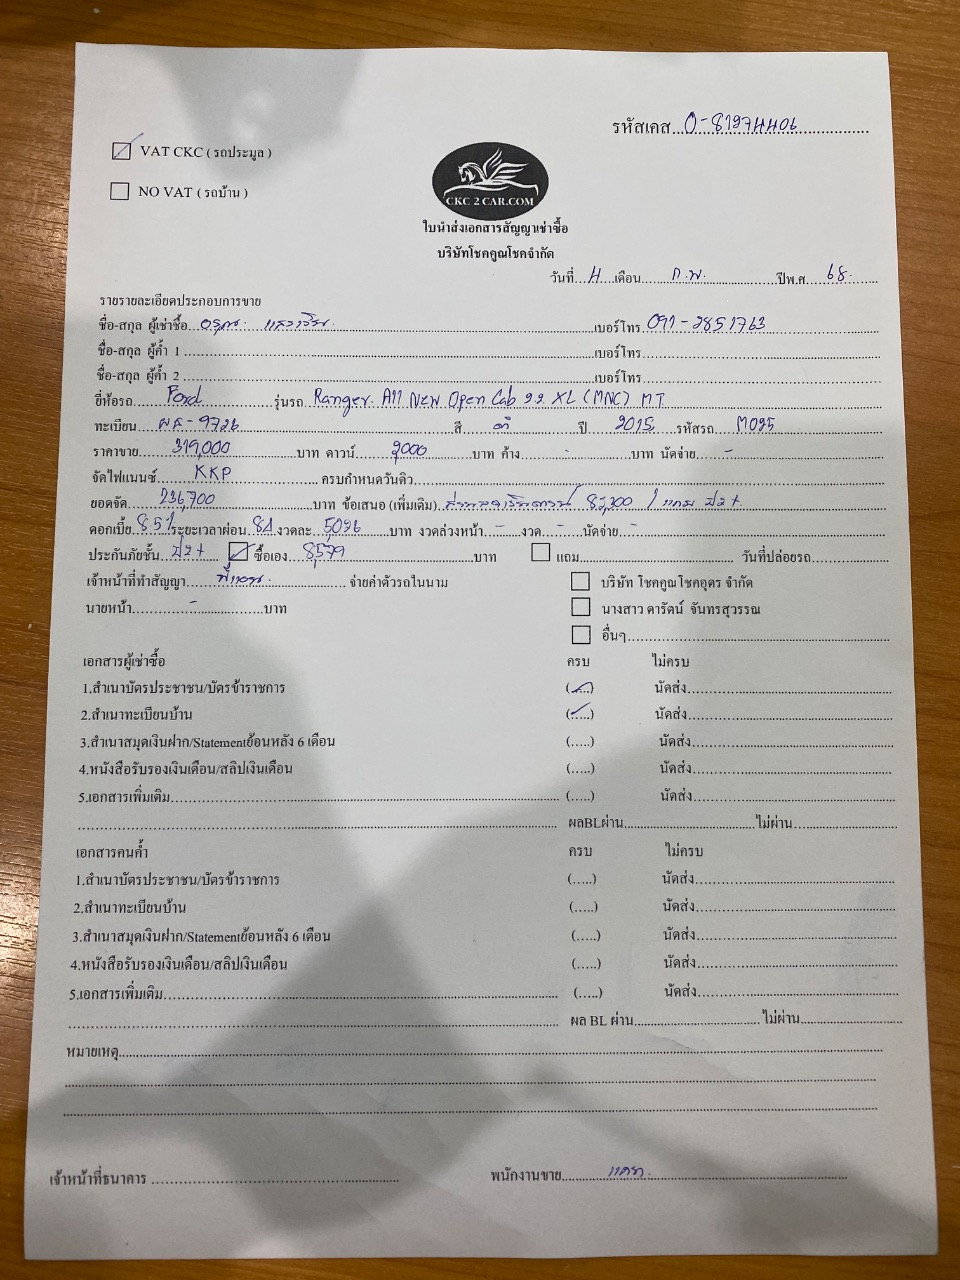 รหัสเคส 0-81974406
VAT CKC ( รถประมูล )
NO VAT ( รถบ้าน )
CKC 2 CAR.COM
ใบนำส่งเอกสารสัญญาเช่าซื้อ
บริษัทโชคคูณโชคจำกัด
วันที่ 4 เดือน ก.พ. ปีพ.ศ 68
รายรายละเอียดประกอบการขาย
ชื่อ-สกุล ผู้เช่าซื้อ เบอร์โทร 091-2851763
ชื่อ-สกุล ผู้ค้ำ 1 เบอร์โทร
ชื่อ-สกุล ผู้ค้ำ 2 เบอร์โทร
ยี่ห้อรถ Ford รุ่นรถ Ranger. All New Open Cab 2.2 XL (MNC) MT
ทะเบียน ผล-9726 สี ดำ ปี 2015 รหัสรถ M025
ราคาขาย 319,000 บาท ดาวน์ 2000 บาท ค้าง - บาท นัดจ่าย -
จัดไฟแนนซ์ KKP ครบกำหนดวันคิว
ยอดจัด 236,700 บาท ข้อเสนอ (เพิ่มเติม) 82,300 / แถม ป2+
ดอกเบี้ย 8.5% ระยะเวลาผ่อน 84 งวดละ 5096 บาท งวดล่วงหน้า - งวด - นัดจ่าย -
ประกันภัยชั้น ป2+ ซื้อเอง 8579 บาท แถม วันที่ปล่อยรถ
เจ้าหน้าที่ทำสัญญา จ่ายค่าตัวรถในนาม บริษัท โชคคูณโชคอุดร จำกัด
นายหน้า - บาท นางสาว ดารัตน์ จันทรสุวรรณ
อื่นๆ
เอกสารผู้เช่าซื้อ ครบ ไม่ครบ
1.สำเนาบัตรประชาชน/บัตรข้าราชการ (.....) นัดส่ง
2.สำเนาทะเบียนบ้าน (.....) นัดส่ง
3.สำเนาสมุดเงินฝาก/Statementย้อนหลัง 6 เดือน (.....) นัดส่ง
4.หนังสือรับรองเงินเดือน/สลิปเงินเดือน (.....) นัดส่ง
5.เอกสารเพิ่มเติม (.....) นัดส่ง
ผลBLผ่าน ไม่ผ่าน
เอกสารคนค้ำ ครบ ไม่ครบ
1.สำเนาบัตรประชาชน/บัตรข้าราชการ (.....) นัดส่ง
2.สำเนาทะเบียนบ้าน (.....) นัดส่ง
3.สำเนาสมุดเงินฝาก/Statementย้อนหลัง 6 เดือน (.....) นัดส่ง
4.หนังสือรับรองเงินเดือน/สลิปเงินเดือน (.....) นัดส่ง
5.เอกสารเพิ่มเติม (.....) นัดส่ง
ผล BL ผ่าน ไม่ผ่าน
หมายเหตุ
เจ้าหน้าที่ธนาคาร พนักงานขาย